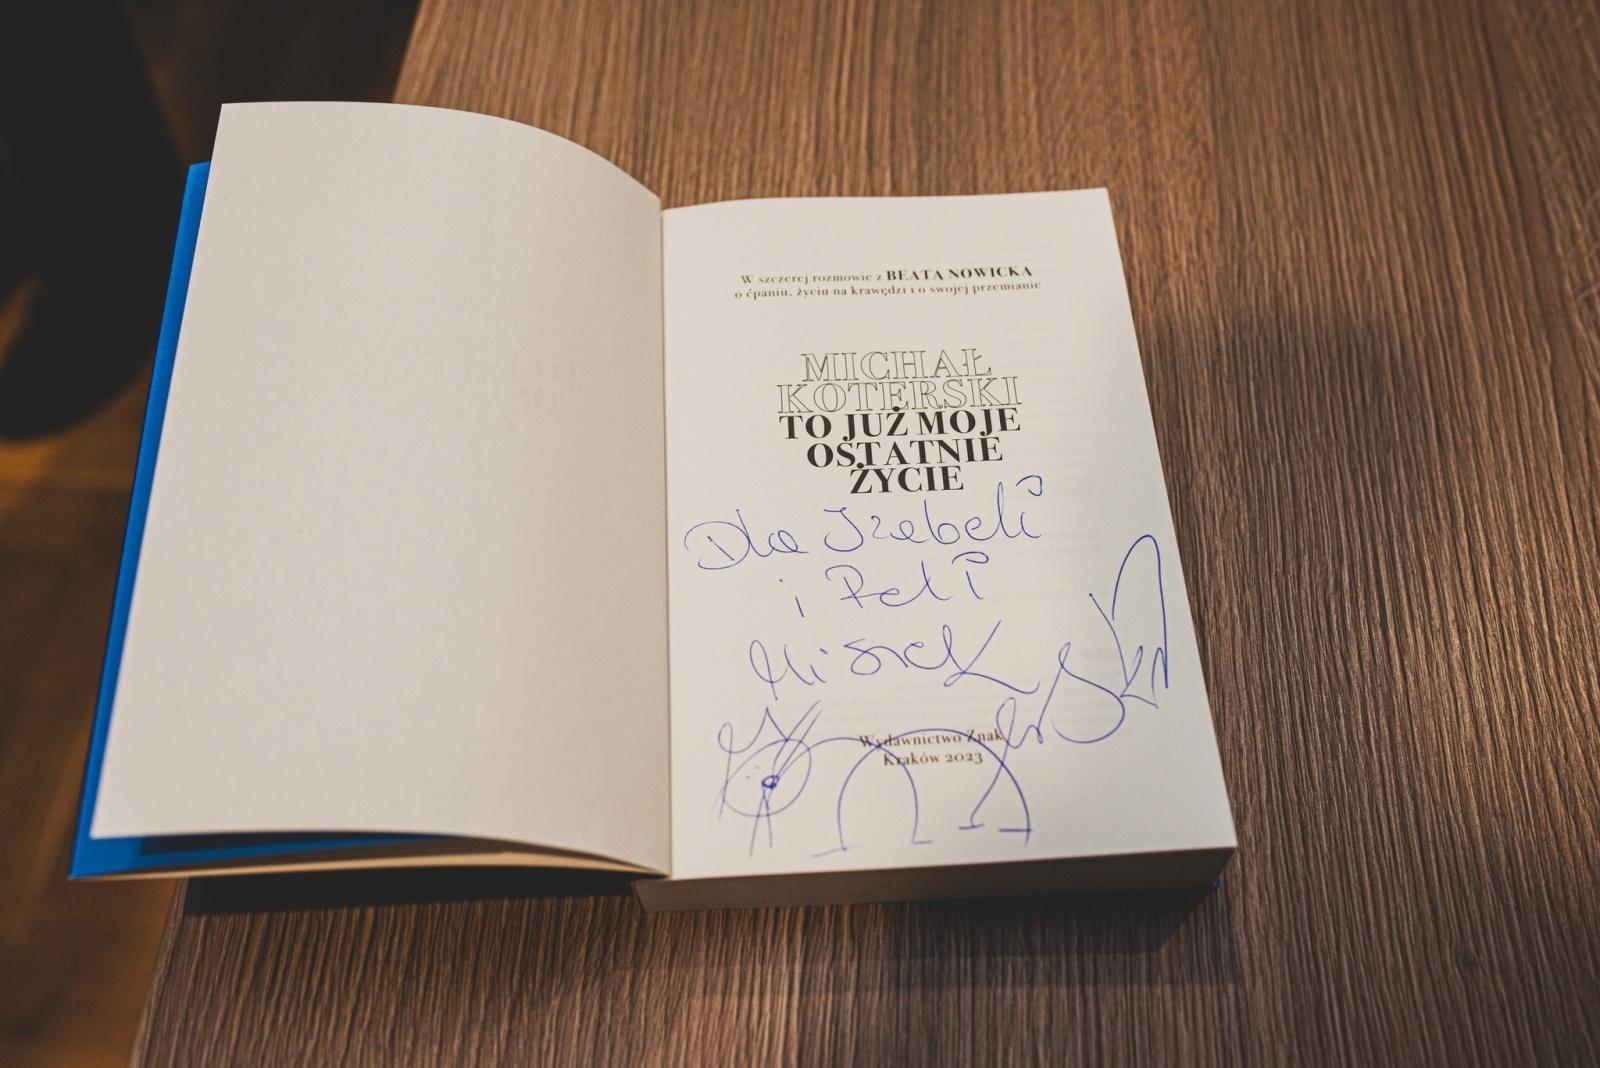 W szczerej rozmowie z BEATĄ NOWICKĄ
o ćpaniu, życiu na krawędzi i o swojej przemianie
MICHAŁ
KOTERSKI
TO JUŻ MOJE
OSTATNIE
ŻYCIE
Dla Izabeli
i
Misiek
Koterski
Wydawnictwo Znak
Kraków 2023